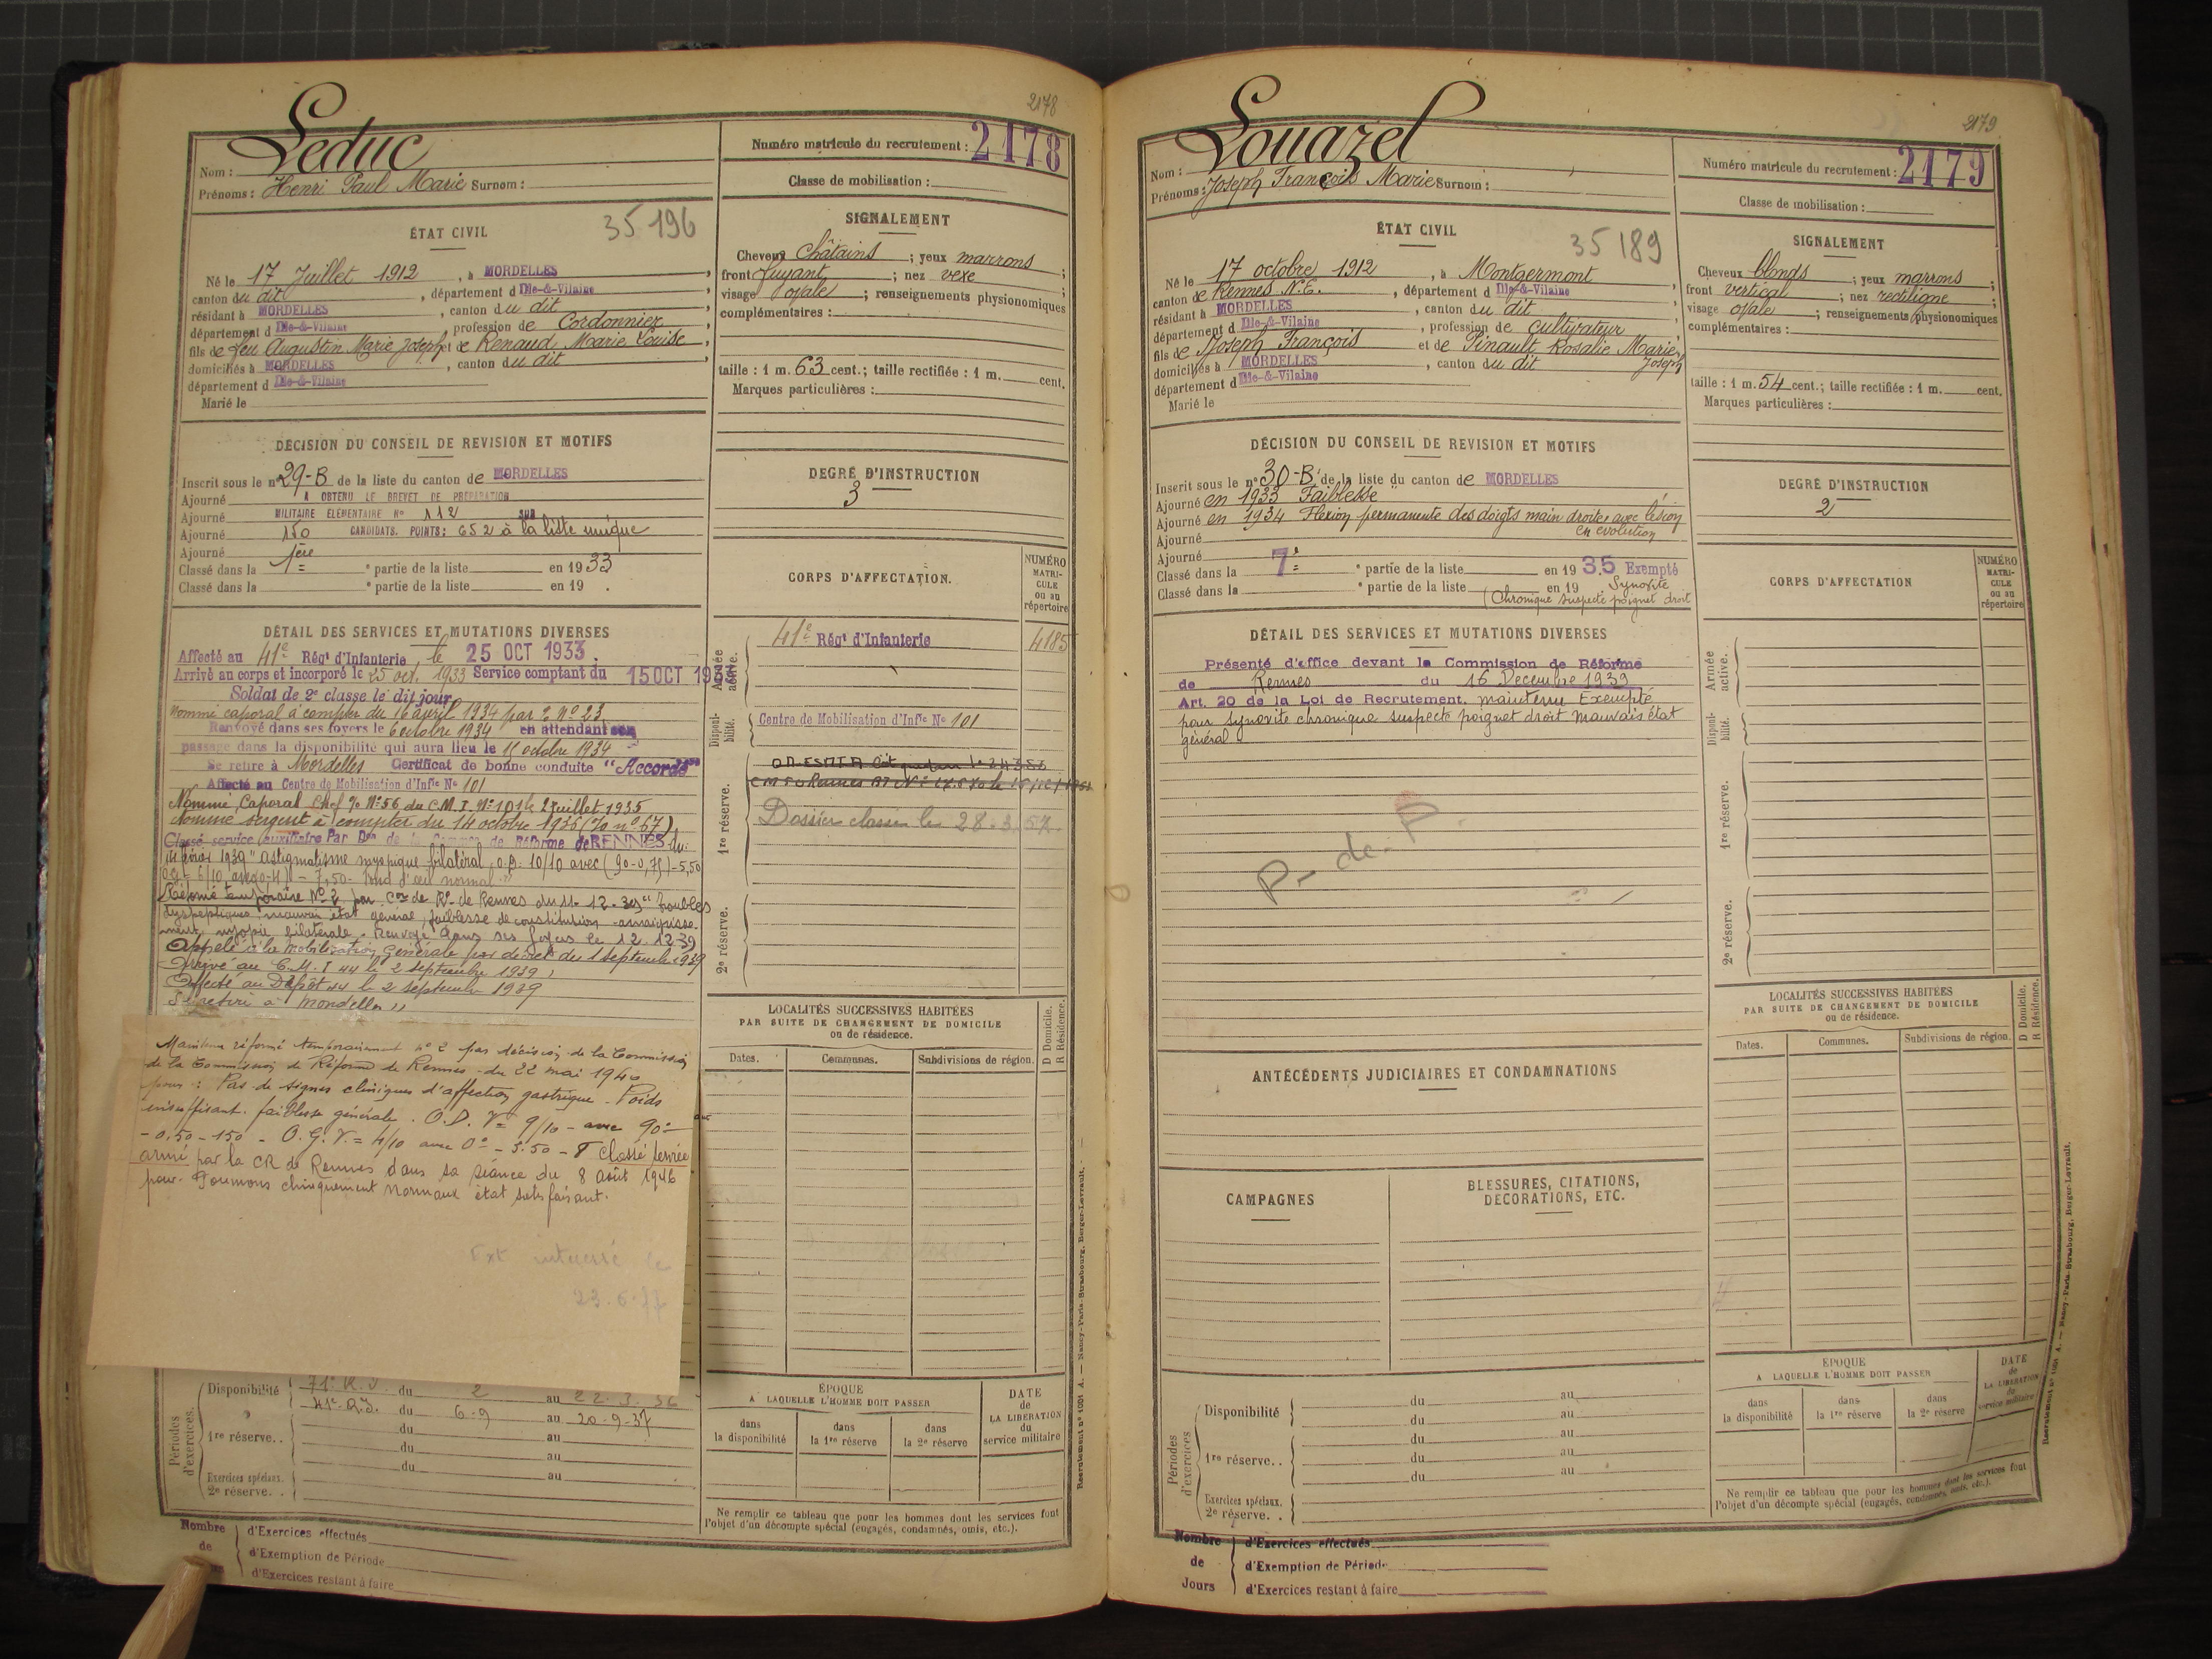 2178
Leduc
Nom :
Prénoms : Henri Paul Marie Surnom :
Numéro matricule du recrutement : 2178
Classe de mobilisation :
ÉTAT CIVIL
35 196
Né le 17 Juillet 1912, à MORDELLES,
canton du dit, département d Ille-&-Vilaine,
résidant à MORDELLES, canton du dit,
département d Ille-&-Vilaine, profession de Cordonnier,
fils de feu Augustin Marie Joseph et de Renaud Marie Louise,
domiciliés à MORDELLES, canton du dit
département d Ille-&-Vilaine
Marié le
SIGNALEMENT
Cheveux châtains ; yeux marrons ;
front fuyant ; nez vexe ;
visage ovale ; renseignements physionomiques
complémentaires :
taille : 1 m. 63 cent.; taille rectifiée : 1 m. cent.
Marques particulières :
DÉCISION DU CONSEIL DE REVISION ET MOTIFS
Inscrit sous le n° 29-B de la liste du canton de MORDELLES
Ajourné A OBTENU LE BREVET DE PRÉPARATION
Ajourné MILITAIRE ÉLÉMENTAIRE N° 112 SUR
Ajourné 150 CANDIDATS. POINTS: 652 à la liste unique
Ajourné
Classé dans la 1ère partie de la liste en 1933
Classé dans la ° partie de la liste en 19 .
DEGRÉ D'INSTRUCTION
3
CORPS D'AFFECTATION.
NUMÉRO MATRI-CULE ou au répertoire
Armée active.
41e Régt d'Infanterie
4185
Disponi-bilité.
Centre de Mobilisation d'Infie N° 101
1re réserve.
Dossier classé le 28.3.57.
2e réserve.
DÉTAIL DES SERVICES ET MUTATIONS DIVERSES
Affecté au 41e Régt d'Infanterie, le 25 OCT 1933.
Arrivé au corps et incorporé le 25 oct. 1933 Service comptant du 15 OCT 1933
Soldat de 2e classe le dit jour
Nommé caporal à compter du 16 avril 1934 par N° 23
Renvoyé dans ses foyers le 6 octobre 1934 en attendant son
passage dans la disponibilité qui aura lieu le octobre 1934
Se retire à Mordelles Certificat de bonne conduite "Accordé"
Affecté au Centre de Mobilisation d'Infie N° 101
Nommé Caporal Chef N° 56 du C.M.I. N° 101 le 2 Juillet 1935
Nommé sergent à compter du 14 octobre 1936 (N° 67)
Classé service auxiliaire Par Don de la Réforme de RENNES du
1939 "Astigmatisme myopique bilatéral, O.D: 10/10 avec (90-0,75)-5,50
7,50 - fond d'œil normal"
Réformé temporaire N° 2 par Con de Re de Rennes du 11-12-39 "troubles
dyspeptiques, mauvais état général, faiblesse de constitution - amaigrisse-
ment, myopie bilatérale. Renvoyé dans ses foyers le 12.12.39
Appelé à la mobilisation Générale par décret du 1 Septembre 1939
Arrivé au C.M.I 44 le 2 septembre 1939,
Affecté au Dépôt 44 le 2 septembre 1939
Se retire à Mordelles
Maintenu réformé temporairement n° 2 par décision de la Commission
de la Commission de Réforme de Rennes du 22 mai 1940
pour : Pas de signes cliniques d'affection gastrique. Poids
insuffisant. faiblesse générale. O.D. V = 9/10 - avec 90°
- 0,50 - 150 - O.G. V = 4/10 avec 0° - 3.50 - 8 Classé service
armé par la CR de Rennes dans sa séance du 8 août 1946
pour Poumons cliniquement normaux état satisfaisant.
Ext intéressé le
23.6.
LOCALITÉS SUCCESSIVES HABITÉES
PAR SUITE DE CHANGEMENT DE DOMICILE
ou de résidence.
D Domicile. R Résidence.
Dates. Communes. Subdivisions de région.
Périodes d'exercices.
Disponibilité 71e R.I. du 2 au 22.3.36
41e R.I. du 6-9 au 20-9-37
1re réserve. . du au
du au
du au
Exercices spéciaux.
2e réserve. .
ÉPOQUE
A LAQUELLE L'HOMME DOIT PASSER
dans la disponibilité
dans la 1re réserve
dans la 2e réserve
DATE de LA LIBÉRATION du service militaire
Ne remplir ce tableau que pour les hommes dont les services font
l'objet d'un décompte spécial (engagés, condamnés, omis, etc.).
Nombre de
d'Exercices effectués
d'Exemption de Période
d'Exercices restant à faire
Recrutement n° 1051 A. — Nancy-Paris-Strasbourg, Berger-Levrault.
2179
Louazel
Nom :
Prénoms : Joseph François Marie Surnom :
Numéro matricule du recrutement : 2179
Classe de mobilisation :
ÉTAT CIVIL
35 189
Né le 17 octobre 1912, à Montgermont,
canton de Rennes N.E., département d Ille-&-Vilaine
résidant à MORDELLES, canton du dit,
département d Ille-&-Vilaine, profession de cultivateur
fils de Joseph François et de Pinault Rosalie Marie
Joseph
domiciliés à MORDELLES, canton du dit
département d Ille-&-Vilaine
Marié le
SIGNALEMENT
Cheveux blonds ; yeux marrons ;
front vertical ; nez rectiligne ;
visage ovale ; renseignements physionomiques
complémentaires :
taille : 1 m. 54 cent.; taille rectifiée : 1 m. cent.
Marques particulières :
DÉCISION DU CONSEIL DE REVISION ET MOTIFS
Inscrit sous le n° 30-B de la liste du canton de MORDELLES
Ajourné en 1933 Faiblesse
Ajourné en 1934 Flexion permanente des doigts main droite avec lésion
en évolution
Ajourné
Ajourné
Classé dans la 7e ° partie de la liste en 1935 Exempté
Classé dans la ° partie de la liste en 19 Synovite
(Chronique suspecte poignet droit
DEGRÉ D'INSTRUCTION
2
CORPS D'AFFECTATION
NUMÉRO MATRI-CULE ou au répertoire
Armée active.
Disponi-bilité.
1re réserve.
2e réserve.
DÉTAIL DES SERVICES ET MUTATIONS DIVERSES
Présenté d'office devant la Commission de Réforme
de Rennes du 16 Décembre 1939
Art. 20 de la Loi de Recrutement. maintenu Exempté
pour Synovite chronique suspecte poignet droit Mauvais état
général.
P- de- P.
ANTÉCÉDENTS JUDICIAIRES ET CONDAMNATIONS
CAMPAGNES
BLESSURES, CITATIONS,
DÉCORATIONS, ETC.
LOCALITÉS SUCCESSIVES HABITÉES
PAR SUITE DE CHANGEMENT DE DOMICILE
ou de résidence.
D Domicile. R Résidence.
Dates. Communes. Subdivisions de région.
Périodes d'exercices
Disponibilité du au
du au
1re réserve. . du au
du au
du au
Exercices spéciaux.
2e réserve. .
ÉPOQUE
A LAQUELLE L'HOMME DOIT PASSER
dans la disponibilité
dans la 1re réserve
dans la 2e réserve
DATE de LA LIBÉRATION du service militaire
Ne remplir ce tableau que pour les hommes dont les services font
l'objet d'un décompte spécial (engagés, condamnés, omis, etc.).
Nombre de Jours
d'Exercices effectués
d'Exemption de Période
d'Exercices restant à faire
Recrutement n° 1051 A. — Nancy-Paris-Strasbourg, Berger-Levrault.